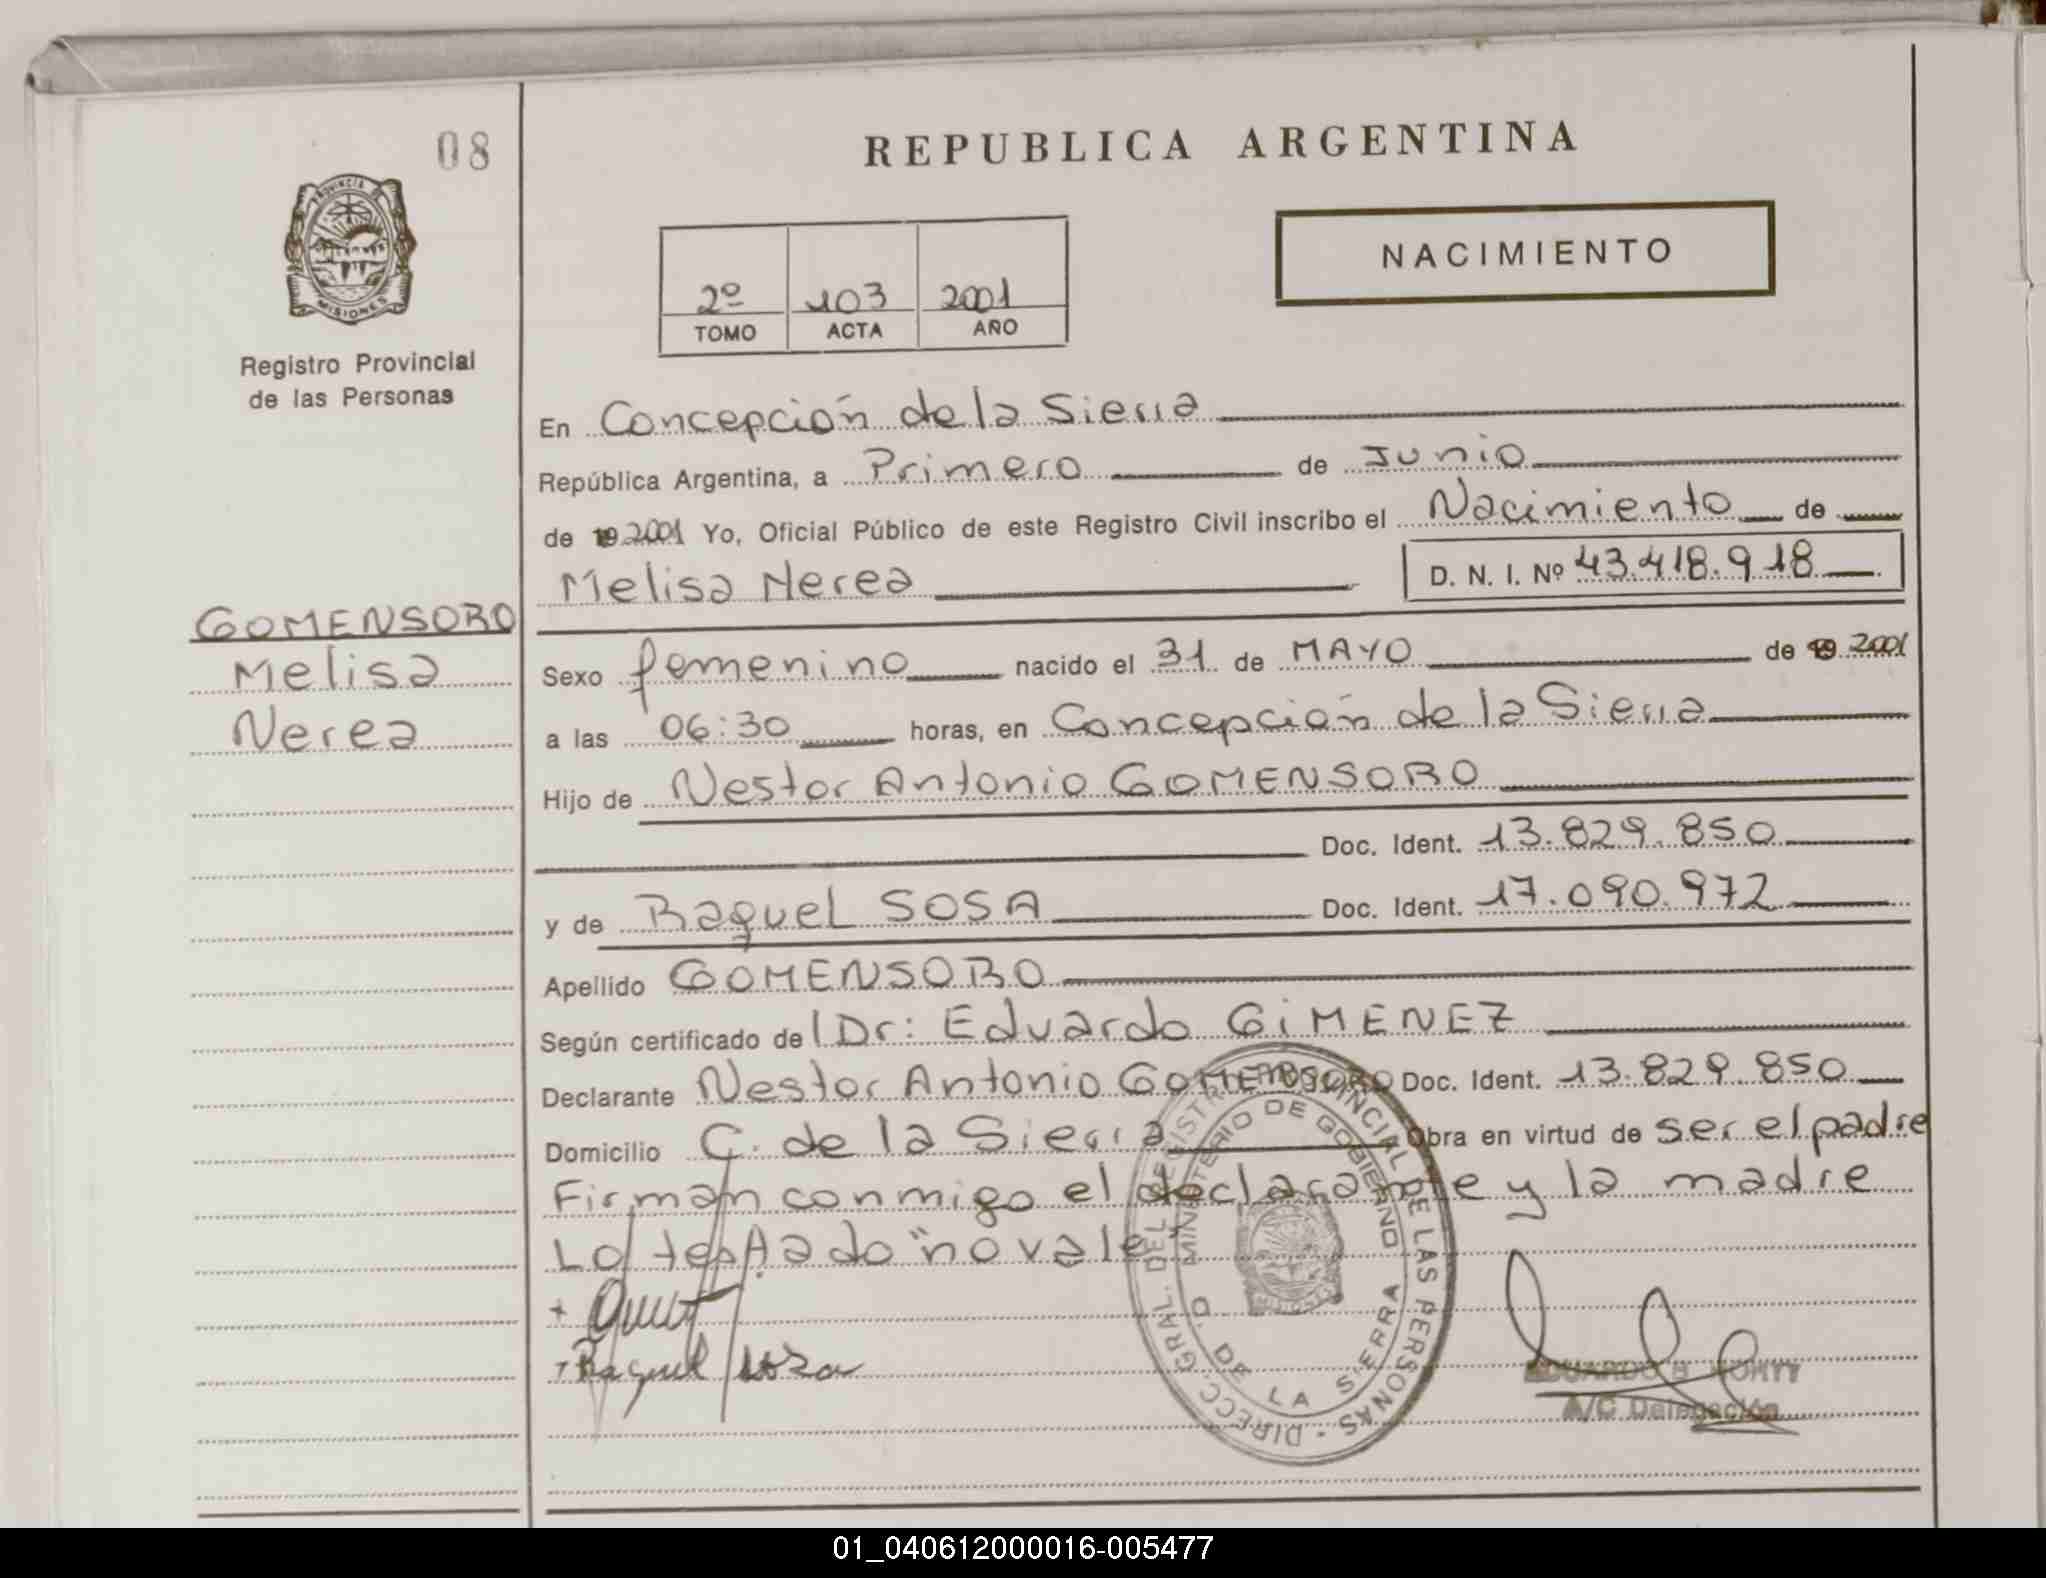 08
REPUBLICA ARGENTINA
PROVINCIA DE
MISIONES
NACIMIENTO
2º 103 2001
TOMO ACTA AÑO
Registro Provincial
de las Personas
En Concepción de la Sierra
República Argentina, a Primero de Junio
de 19 2001 Yo, Oficial Público de este Registro Civil inscribo el Nacimiento de
Melisa Nerea D. N. I. Nº 43.418.918
GOMENSORO
Melisa
Nerea
Sexo femenino nacido el 31 de MAYO de 19 2001
a las 06:30 horas, en Concepción de la Sierra
Hijo de Nestor Antonio GOMENSORO
Doc. Ident. 13.829.850
y de Raquel SOSA Doc. Ident. 17.090.972
Apellido GOMENSORO
Según certificado de l Dr: Eduardo GiMENEZ
Declarante Nestor Antonio GOMENSORO Doc. Ident. 13.829.850
Domicilio C. de la Sierra Obra en virtud de ser el padre
Firman conmigo el declarante y la madre
Lo testado "no vale"
Raquel sosa
DIRECC. GRAL. DEL REGISTRO PROVINCIAL DE LAS PERSONAS
MINISTERIO DE GOBIERNO
C. DE LA SIERRA
EDUARDO
A/C Delegación
01_040612000016-005477